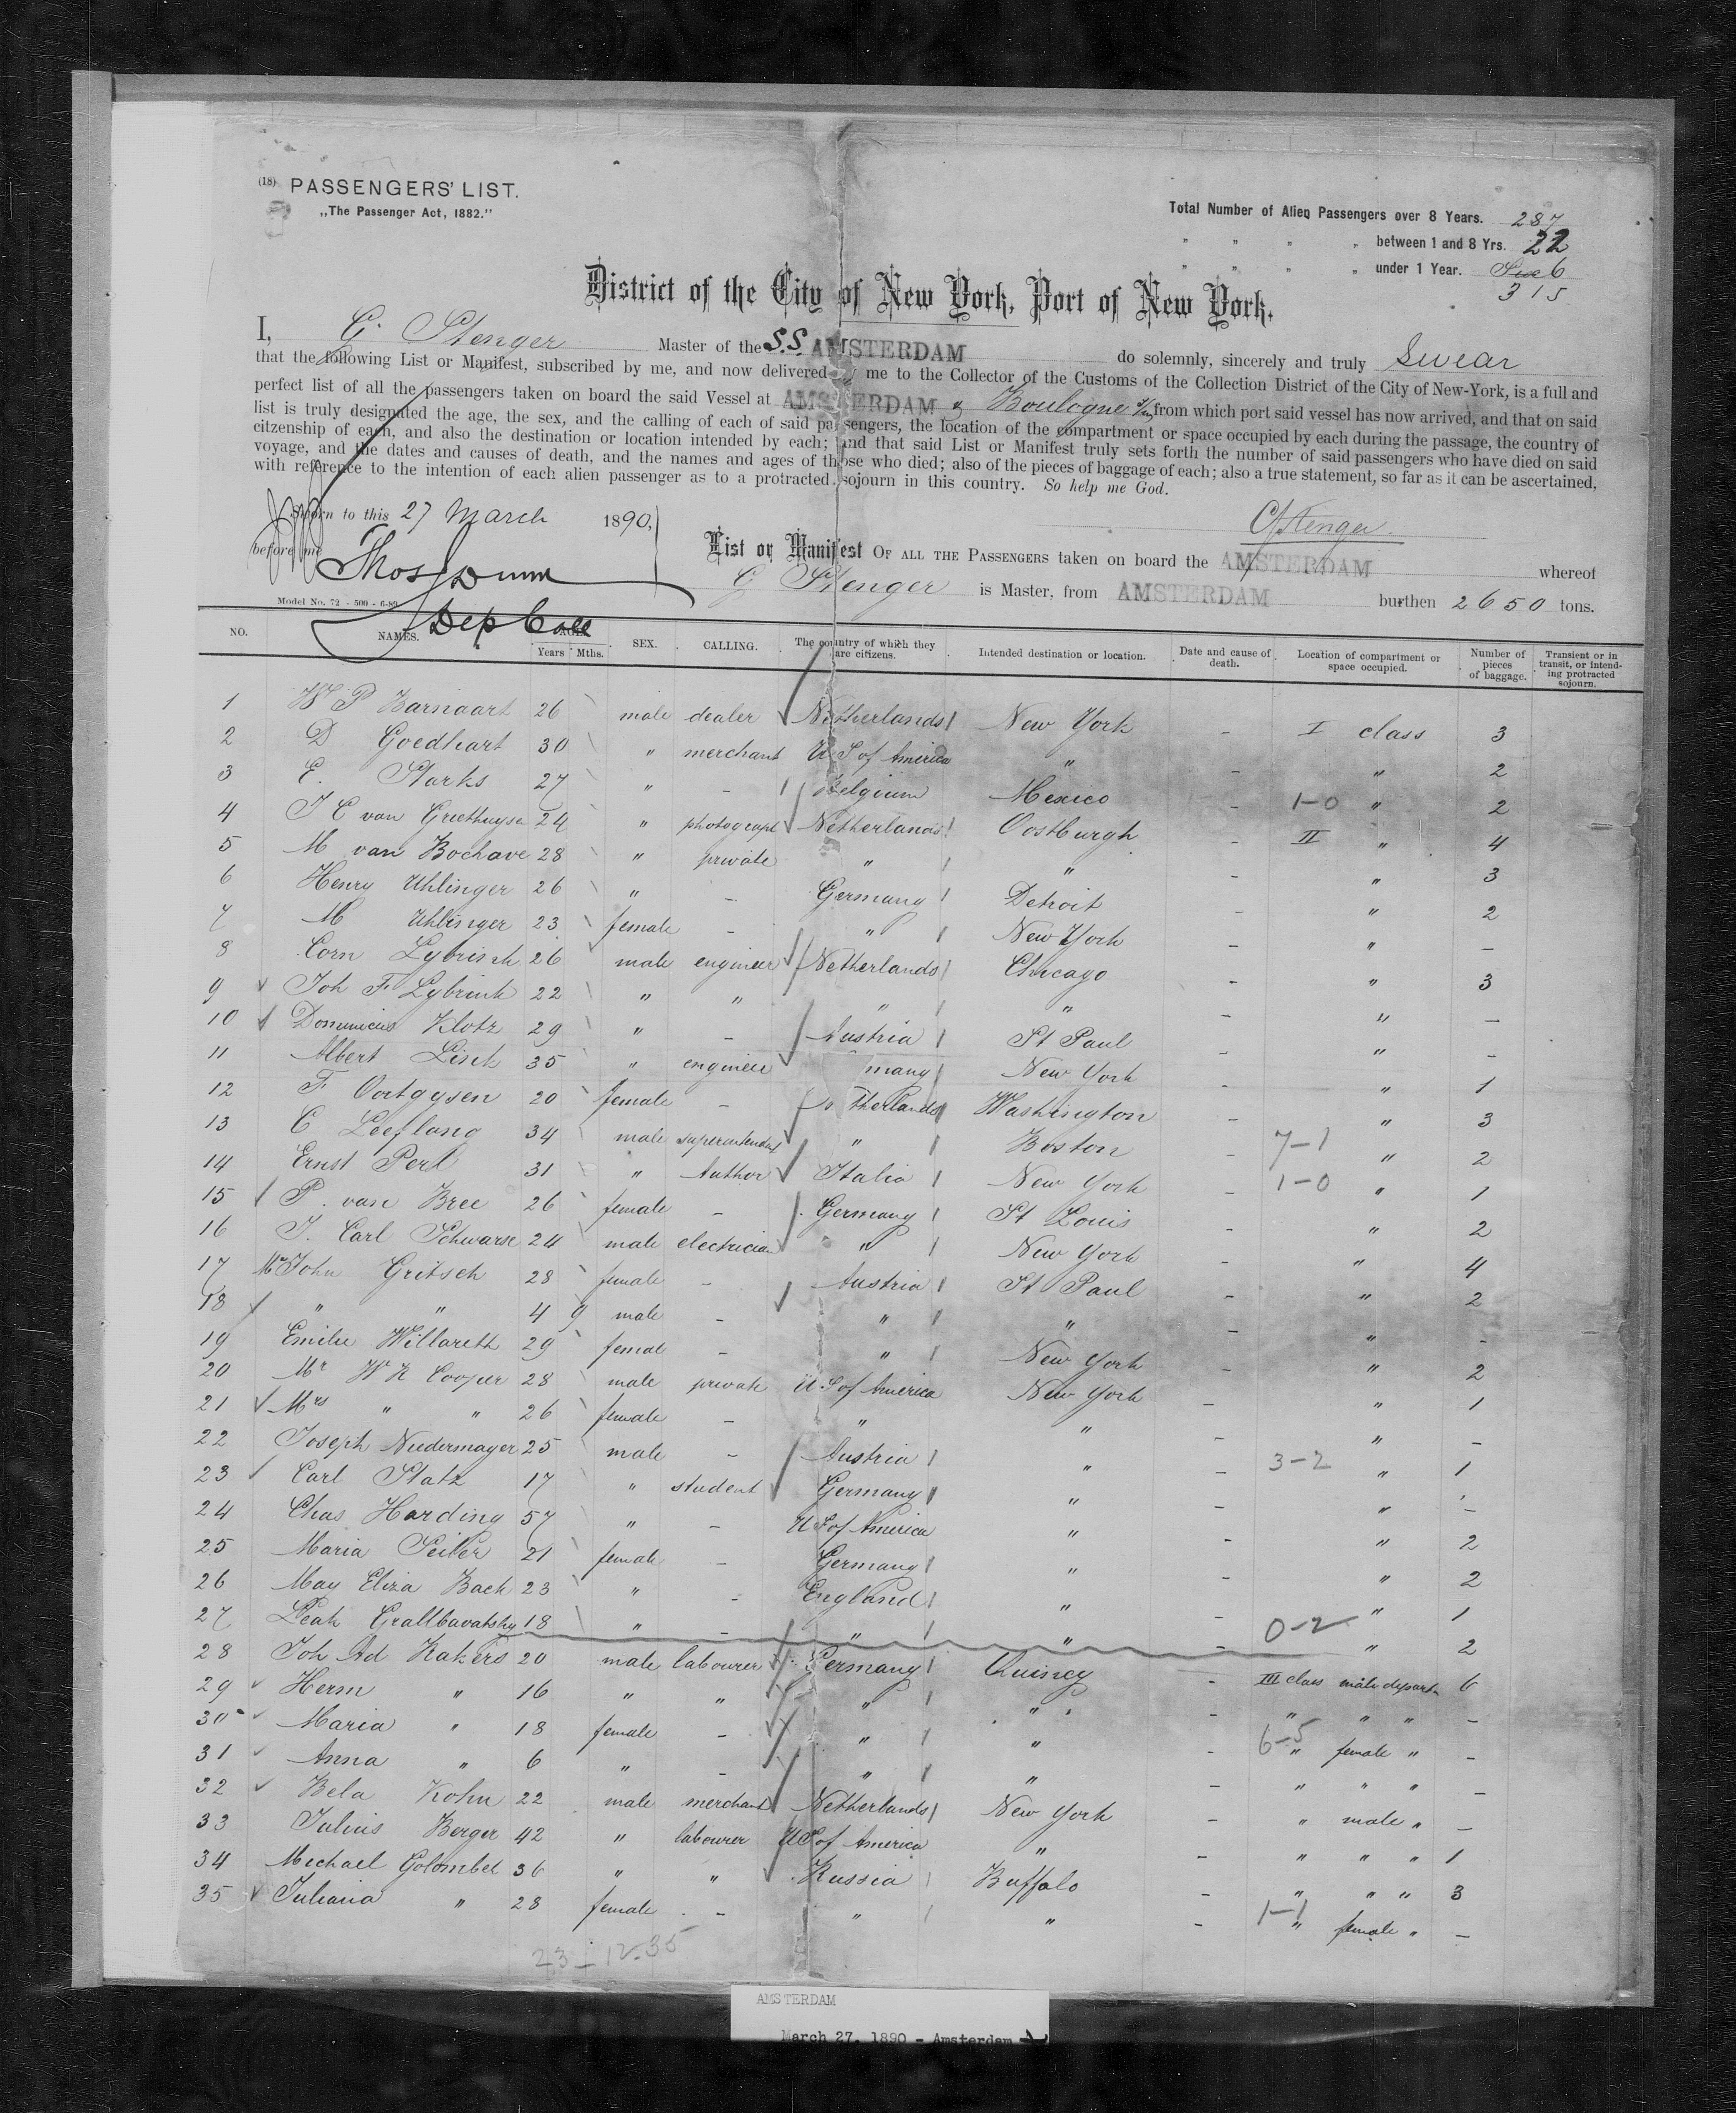 (18) PASSENGERS' LIST.
„The Passenger Act, 1882."
Total Number of Alien Passengers over 8 Years. 287
" " " " between 1 and 8 Yrs. 22
" " " " under 1 Year. 6
315
District of the City of New York, Port of New York.
I, G. Stenger Master of the S.S. AMSTERDAM do solemnly, sincerely and truly swear
that the following List or Manifest, subscribed by me, and now delivered by me to the Collector of the Customs of the Collection District of the City of New-York, is a full and
perfect list of all the passengers taken on board the said Vessel at AMSTERDAM & Boulogne s/m from which port said vessel has now arrived, and that on said
list is truly designated the age, the sex, and the calling of each of said passengers, the location of the compartment or space occupied by each during the passage, the country of
citzenship of each, and also the destination or location intended by each; and that said List or Manifest truly sets forth the number of said passengers who have died on said
voyage, and the dates and causes of death, and the names and ages of those who died; also of the pieces of baggage of each; also a true statement, so far as it can be ascertained,
with reference to the intention of each alien passenger as to a protracted sojourn in this country. So help me God.
Sworn to this 27 March 1890,
G Stenger.
before me Thos J Dunn
Dep Coll
List or Manifest OF ALL THE PASSENGERS taken on board the AMSTERDAM whereof
G Stenger is Master, from AMSTERDAM burthen 2650 tons.
Model No. 72 - 500 - 6-89
NO. NAMES. AGE. Years Mths. SEX. CALLING. The country of which they are citizens. Intended destination or location. Date and cause of death. Location of compartment or space occupied. Number of pieces of baggage. Transient or in transit, or intending protracted sojourn.
1 W P Barnaart 26 male dealer Netherlands New York - I class 3
2 D Goedhart 30 " merchant U S of America " - " 2
3 E. Starks 27 " - Belgium Mexico - 1-0 " 2
4 J C van Griethuysen 24 " photograph Netherlands Oostburgh - II " 4
5 M van Bochave 28 " private " " - " 3
6 Henry Uhlinger 26 " - Germany Detroit - " 2
7 M Uhlinger 23 female - " New York - " -
8 Corn Lybrink 26 male engineer Netherlands Chicago - " 3
9 Joh F Lybrink 22 " " " " - " -
10 Dominicus Klotz 29 " - Austria St Paul - " -
11 Albert Lisch 35 " engineer many New York - " 1
12 F Oortgysen 20 female - therlands Washington - " 3
13 C Leeflang 34 male superintendent " Boston - 7-1 " 2
14 Ernst Perl 31 " Author Italia New York - 1-0 " 1
15 P. van Bree 26 female - Germany St Louis - " 2
16 J. Carl Schwarse 24 male electrician " New York - " 4
17 Mrs John Gritsch 28 female - Austria St Paul - " 2
18 " " 4 9 male - " " - " -
19 Emilie Willareth 29 female - " New York - " 2
20 Mr W K Cooper 28 male private U.S of America New York - " 1
21 Mrs " " 26 female - " " - " -
22 Joseph Niedermayer 25 male - Austria " - 3-2 " 1
23 Carl Platz 17 " student Germany " - " -
24 Chas Harding 57 " - U S of America " - " 2
25 Maria Seiler 21 female - Germany " - " 2
26 May Eliza Bach 23 " - England " - " 1
27 Leah 18 " - " " - 0-2 " 2
28 Joh Ad Rakers 20 male labourer Germany Quincy - III class male depart. 6
29 Herm " 16 " " " " - " " " -
30 Maria " 18 female - " " - 6-5 " female " -
31 Anna " 6 " - " " - " " " -
32 Bela Kohn 22 male merchant Netherlands New York - " male " -
33 Julius Berger 42 " labourer U S of America " - " " " 1
34 Mechael Golombek 36 " " Russia Buffalo - " " " 3
35 Juliana " 28 female - " " - 1-1 " female " -
23-12.35
AMSTERDAM
March 27, 1890 - Amsterdam